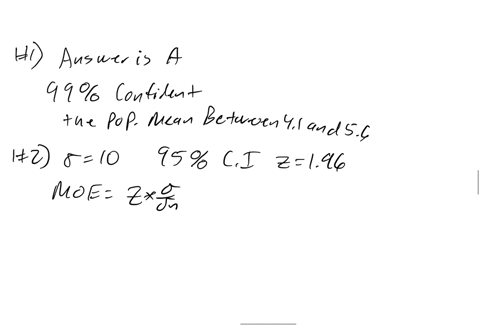 #1) Answer is A
99% Confident
the Pop. Mean Between 4.1 and 5.6
#2) σ=10 95% C.I z=1.96
MOE= Z*σ/√n